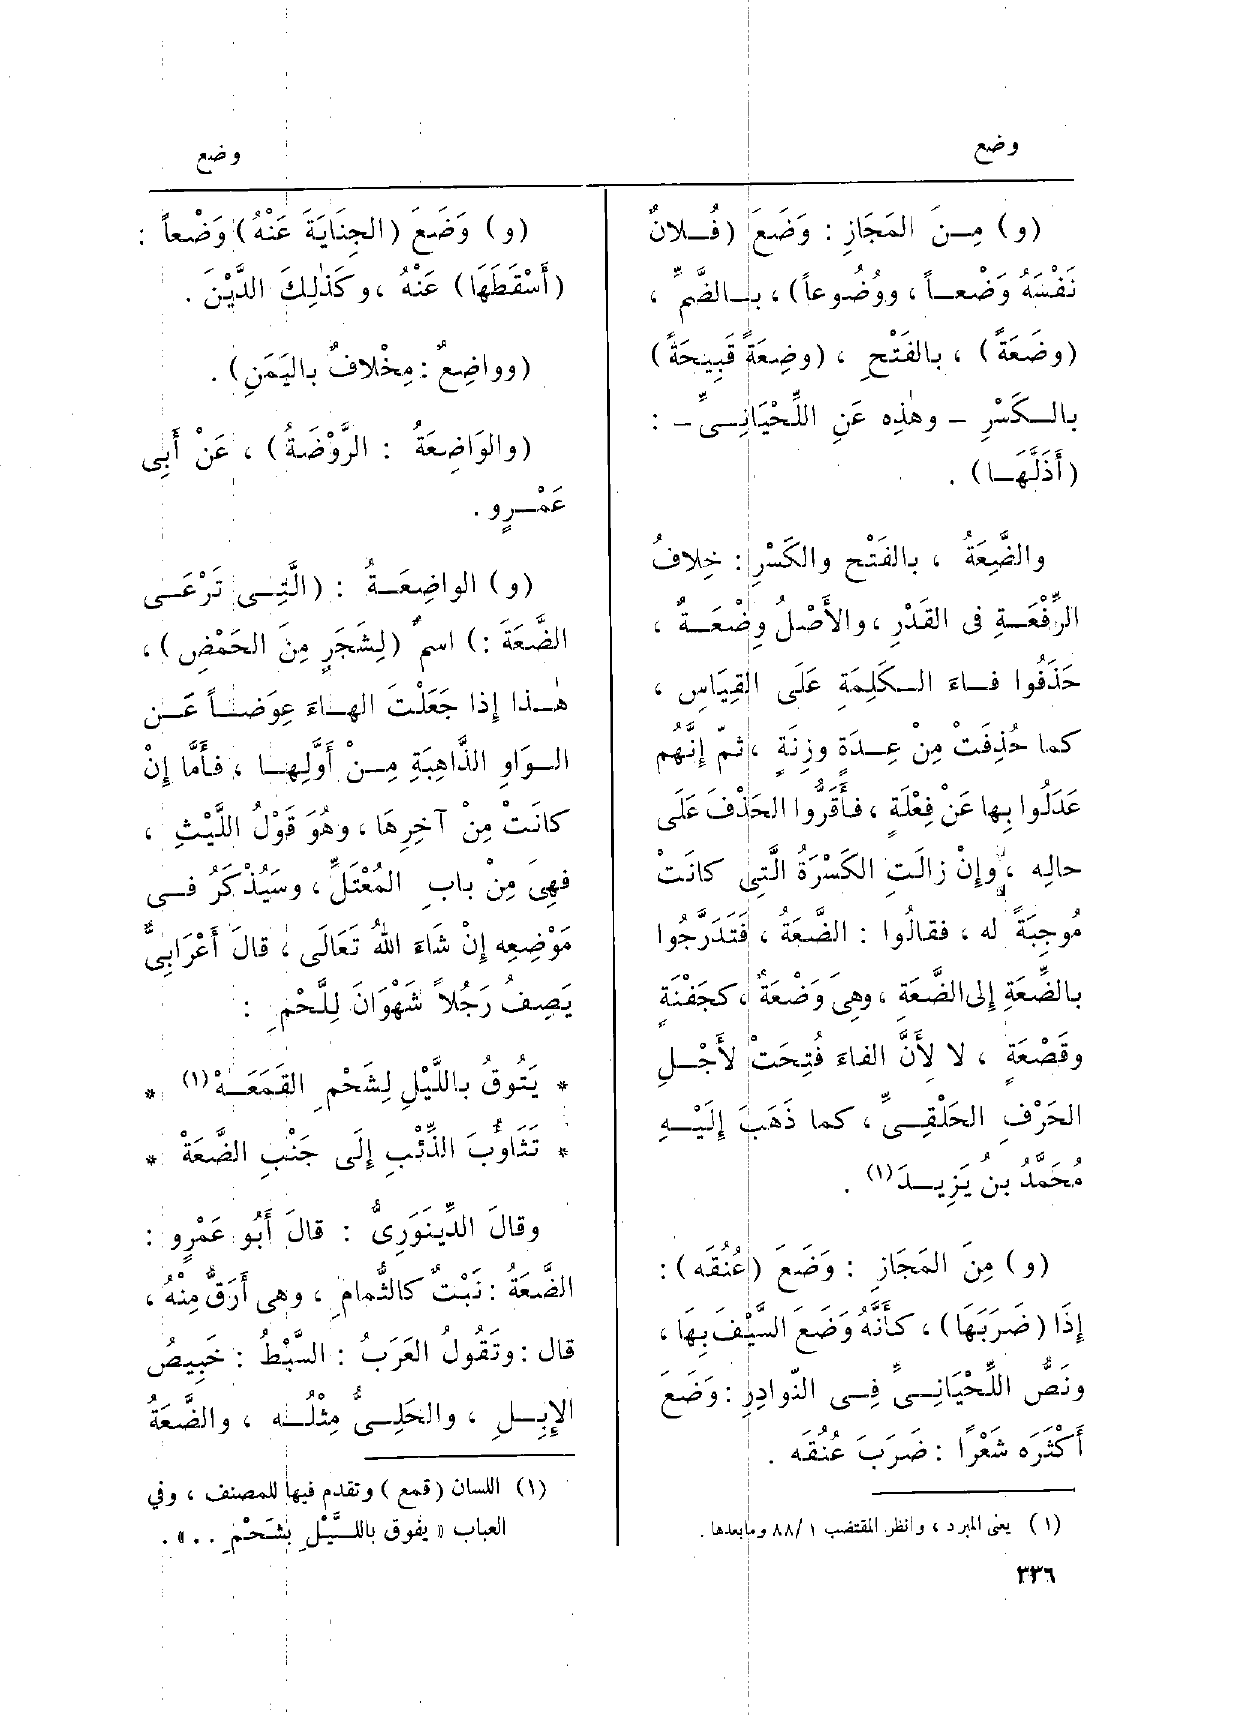 وضع
وضع
(و) مِـنَ المَجَازِ : وَضَعَ (فُـلانٌ
نَفْسَهُ وَضْعـاً ، ووُضُوعاً) ، بـالضَّمِّ ،
(وضَعَةً) ، بالفَتْحِ ، (وضِعَةً قَبِيحَةً)
بالـكَسْرِ - وهٰذِه عَنِ اللِّحْيَانِـىِّ - :
(أَذَلَّهَـا) .
والضَّعَةُ ، بالفَتْح والكَسْرِ : خِلافُ
الرِّفْعَـةِ فى القَدْرِ ، والأَصْلُ وِضْعَـةٌ ،
حَذَفُوا فـاءَ الـكَلِمَةِ عَلَى القِيَاسِ ،
كما حُذِفَتْ مِنْ عِـدَةٍ وزِنَةٍ ، ثمّ إِنَّهُم
عَدَلُوا بِها عَنْ فِعْلَةٍ ، فأَقَرُّوا الحَذْفَ عَلَى
حالِه ، وإِنْ زالَتِ الكَسْرَةُ الَّتِى كانَتْ
مُوجِبَةً له ، فقالُوا : الضَّعَةُ ، فَتَدَرَّجُوا
بالضِّعَةِ إِلى الضَّعَةِ ، وهِىَ وَضْعَةٌ ، كجَفْنَةٍ
وقَصْعَةٍ ، لا لأَنَّ الفاءَ فُتِحَتْ لأَجْـلِ
الحَرْفِ الحَلْقِـىِّ ، كما ذَهَبَ إِلَيْـهِ
مُحَمَّدُ بنُ يَزِيـدَ (١) .
(و) مِنَ المَجَازِ : وَضَعَ (عُنُقَه) :
إِذَا (ضَرَبَهَا) ، كأَنَّهُ وَضَعَ السَّيْفَ بِهَا ،
ونَصُّ اللِّحْيَانِـىِّ فِـى النّوادِرِ : وَضَعَ
أَكْثَرَه شَعْرًا : ضَرَبَ عُنُقَه .
(١) يعنى المبرد ، وانظر المقتضب ١ / ٨٨ وما بعدها .
٣٣٦
(و) وَضَعَ (الجِنَايَةَ عَنْهُ) وَضْعاً :
(أَسْقَطَهَا) عَنْهُ ، وكَذٰلِكَ الدَّيْنَ .
(وواضِعٌ : مِخْلافٌ باليَمَنِ) .
(والوَاضِعَةُ : الرَّوْضَةُ) ، عَنْ أَبِى
عَمْـرٍو .
(و) الواضِعَـةُ : (الَّتِـى تَرْعَـى
الضَّعَةَ :) اسمٌ (لِشَجَرٍ مِنَ الحَمْضِ) ،
هٰـذا إِذا جَعَلْتَ الهـاءَ عِوَضـاً عَـن
الـوَاوِ الذَّاهِبَةِ مِـنْ أَوَّلِهـا ، فأَمَّا إِنْ
كانَتْ مِنْ آخِرِهَا ، وهُوَ قَوْلُ اللَّيْثِ ،
فهِىَ مِنْ بابِ المُعْتَلِّ ، وسَيُذْكَرُ فـى
مَوْضِعِه إِنْ شَاءَ اللهُ تَعَالَى ، قالَ أَعْرَابىٌّ
يَصِفُ رَجُلاً شَهْوَانَ لِلَّحْمِ :
* يَتُوقُ باللَّيْلِ لِشَحْمِ القَمَعَـهْ (١) *
* تَثَاوُبَ الذِّئْبِ إِلَى جَنْبِ الضَّعَهْ *
وقالَ الدِّينَوَرِىُّ : قالَ أَبُو عَمْرٍو :
الضَّعَةُ : نَبْتٌ كالثُّمامِ ، وهى أَرَقُّ مِنْهُ ،
قال : وتَقُولُ العَرَبُ : السَّبْطُ : خَبِيصُ
الإِبِـلِ ، والحَلِـىُّ مِثْلُـه ، والضَّعَةُ
(١) اللسان (قمع) وتقدم فيها للمصنف ، وفي
العباب « يفوق باللَّيْلِ بشَحْمِ . . » .